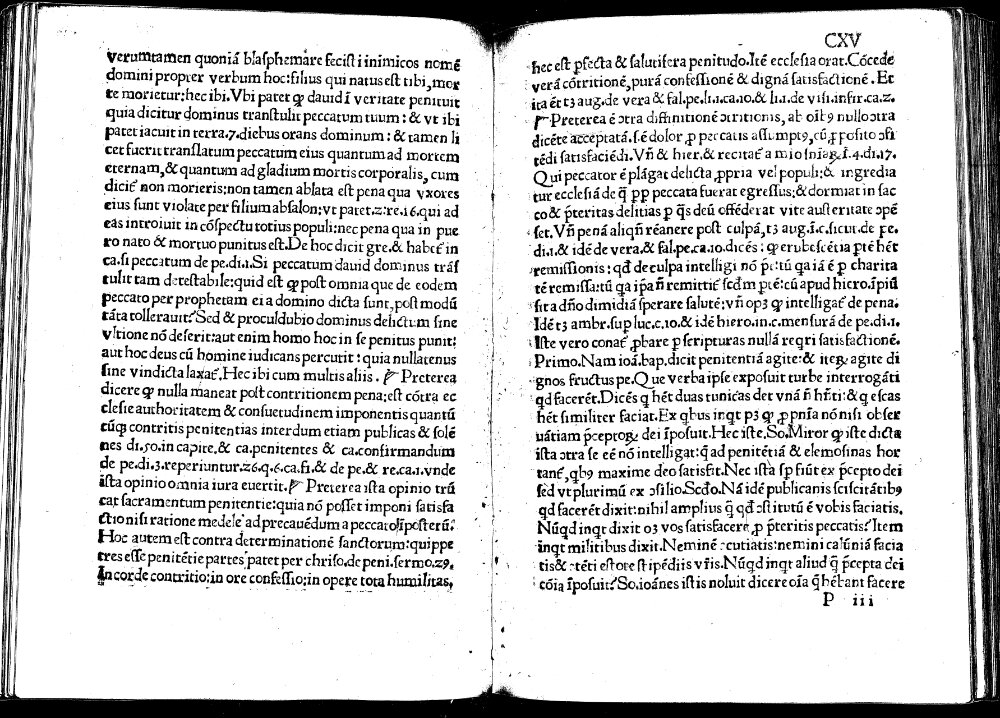 verumtamen quoniā blasphemare fecisti inimicos nomē
domini propter verbum hoc: filius qui natus est tibi, mor
te morietur; hec ibi. Vbi patet ꝙ dauid ī veritate penituit
quia dicitur dominus transtulit peccatum tuum: & vt ibi
patet iacuit in terra.7.diebus orans dominum: & tamen li
cet fuerit translatum peccatum eius quantum ad mortem
eternam, & quantum ad gladium mortis corporalis, cum
dicit̄ non morieris: non tamen ablata est pena qua vxores
eius sunt violate per filium absalon: vt patet.2.re.16. qui ad
eas introiuit in cōspectu totius populi: nec pena qua in pue
ro nato & mortuo punitus est. De hoc dicit gre. & habet̄ in
ca. si peccatum de pe.di.1. Si peccatum dauid dominus trās
tulit tam detestabile: quid est ꝙ post omnia que de eodem
peccato per prophetam ei a domino dicta sunt, post modū
tāta tollerauit? Sed & proculdubio dominus delictum sine
vltione nō deserit: aut enim homo hoc in se penitus punit:
aut hoc deus cū homine iudicans percutit: quia nullatenus
sine vindicta laxat̄. Hec ibi cum multis aliis. ☞ Preterea
dicere ꝙ nulla maneat post contritionem pena: est cōtra ec
clesie authoritatem & consuetudinem imponentis quantū
cūꝗ contritis penitentias interdum etiam publicas & solē
nes di.50. in capite, & ca. penitentes & ca. confirmandum
de pe.di.3. reperiuntur.26.q.6.ca.fi. & de pe. & re.ca.1. vnde
ista opinio omnia iura euertit. ☞ Preterea ista opinio trū
cat sacramentum penitentie: quia nō posset imponi satisfa
ctio nisi ratione medele ad precauēdum a peccato īposterū:
Hoc autem est contra determinationē sanctorum: quippe
tres esse penitētie partes patet per chriso. de peni. sermo.29.
In corde contritio: in ore confessio: in opere tota humilitas,
CXV
hec est ꝑfecta & salutifera penitudo. Itē ecclesia orat. Cōcede
verā cōtritionē, purā confessionē & dignā satisfactionē. Et
ita ēt tꝫ aug. de vera & fal.pe.li.1.ca.10. & li.1. de visi.infir.ca.2.
☞ Preterea ē ↄtra diffinitionē ↄtritionis, ab oīb9 nullo ↄtra
dicēte acceptatā. s.ē dolor ꝓ peccatis assumpt9, cū ꝓposito ↄfi
tēdi satisfaciēdi. Vn̄ & hier. & recitat̄ a .4.di.17.
Qui peccator ē plāgat delicta ꝓpria vel populi: & ingredia
tur ecclesiā de q̄ ꝓp̄ peccata fuerat egressus: & dormiat in sac
co & p̄teritas delitias ꝑ q̄s deū offēderat vite austeritate ↄpē
set. Vn̄ penā aliqn̄ rēanere post culpā, tꝫ aug.ī.c.sicut. de pe.
di.1. & idē de vera. & fal.pe.ca.10. dicēs: ꝙ erubescētia ptē hēt
remissionis: qđ de culpa intelligi nō p̄t: tū qa iā ē ꝑ charita
tē remissa: tū qa ipā n̄ remittit̄ scđm ptē: cū apud hiero. īpiū
sit a dn̄o dimidiā sperare salutē: vn̄ opꝫ ꝙ intelligat̄ de pena.
Idē tꝫ ambr. sup luc.c.10. & idē hiero. in.c. mensurā de pe.di.1.
Iste vero conat̄ ꝓbare ꝑ scripturas nullā reqri satisfactionē.
Primo. Nam ioā.bap. dicit penitentiā agite: & iteꝝ agite di
gnos fructus pe. Que verba ipse exposuit turbe interrogāti
qđ facerēt. Dicēs ꝗ hēt duas tunicas det vnā n̄ hn̄ti: & ꝗ escas
hēt similiter faciat. Ex qbus inqt pꝫ ꝙ ꝓ pn̄ia nō nisi obser
uātiam p̄ceptoꝝ dei īposuit. Hec iste. So. Miror ꝙ iste dicta
ista ↄtra se eē nō intelligat: q̄ ad penitētiā & elemosinas hor
tant̄, qb9 maxime deo satisfit. Nec ista sp̄ fiūt ex p̄cepto dei
sed vt plurimū ex ↄsilio. Scđo. Nā idē publicanis sciscitātib9
qđ facerēt dixit: nihil amplius q̄ qđ ↄstitutū ē vobis faciatis.
Nūqđ inqt dixit oꝫ vos satisfacere ꝓ p̄teritis peccatis? Item
inqt militibus dixit. Neminē ↄcutiatis: nemini calūniā facia
tis & ↄtēti estote stipēdiis vr̄is. Nūqđ inqt aliud q̄ p̄cepta dei
cōia īposuit? So. ioānes istis noluit dicere oīa q̄ hēbant facere
P iii